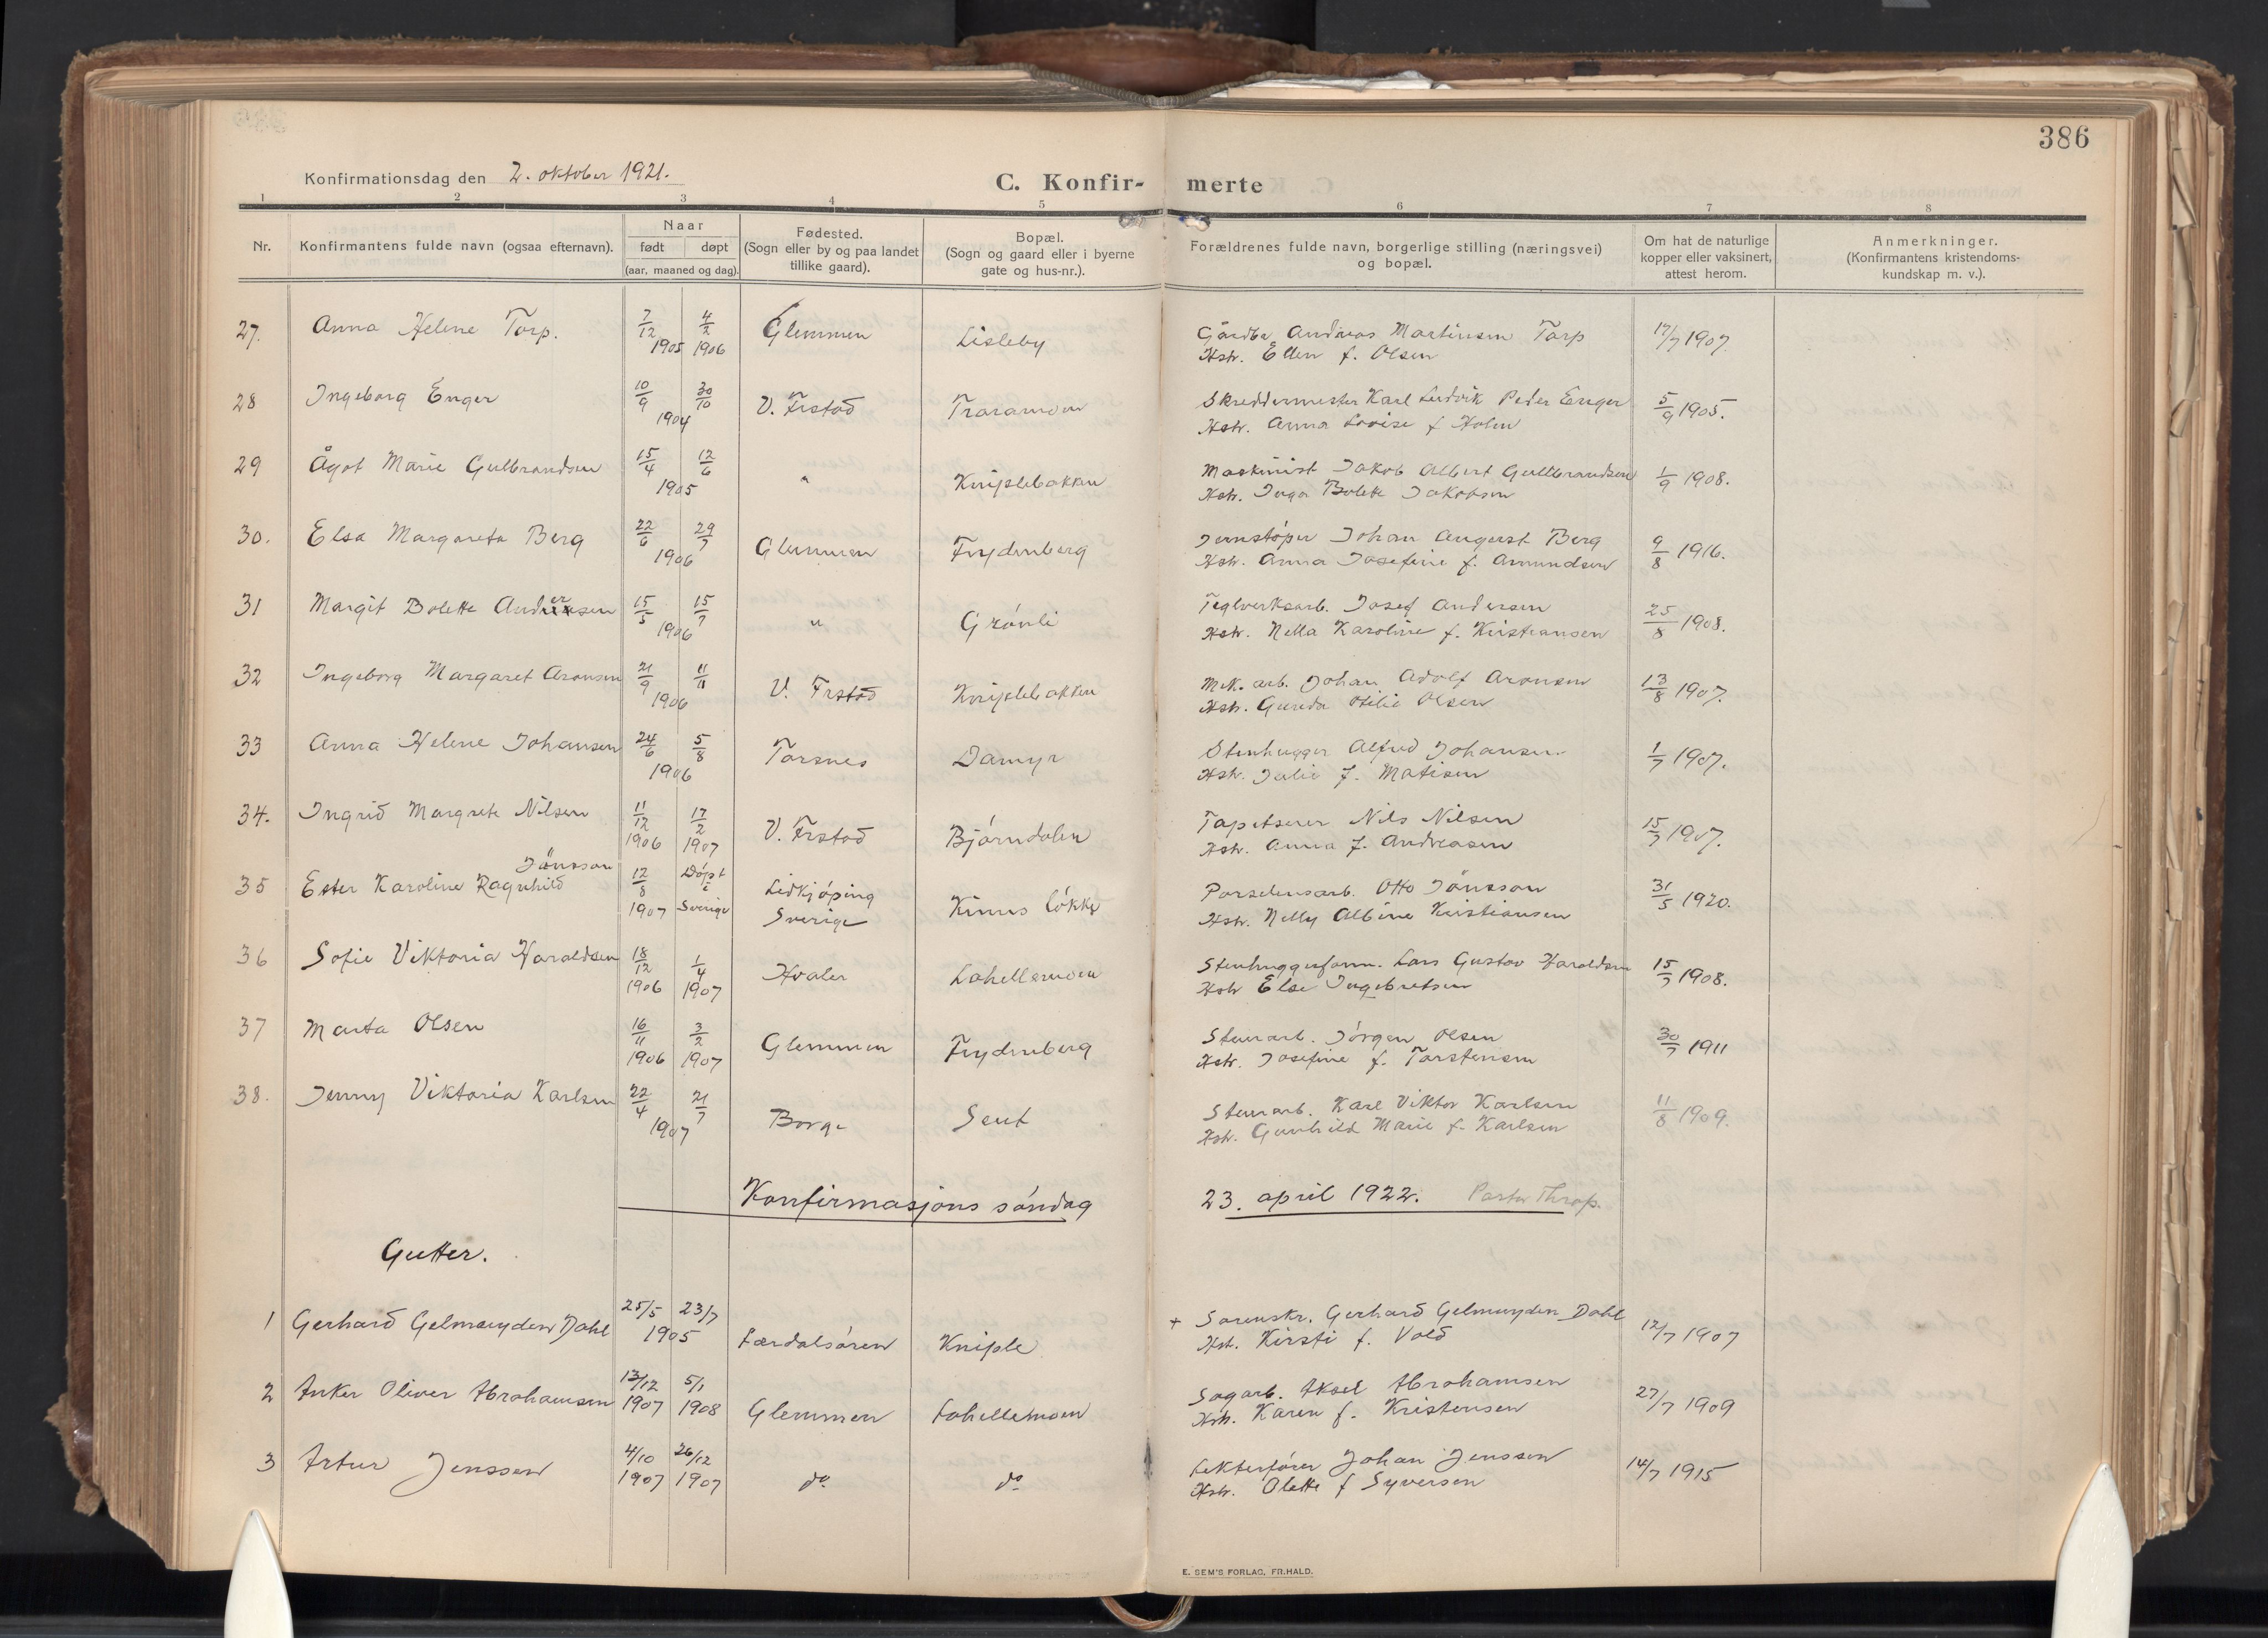 386
Konfirmationsdag den 2. oktober 1921.
C. Konfir- merte
1 2 3 4 5 6 7 8
Nr.
Konfirmantens fulde navn (ogsaa efternavn).
Naar
født døpt
(aar, maaned og dag).
Fødested.
(Sogn eller by og paa landet
tillike gaard).
Bopæl.
(Sogn og gaard eller i byerne
gate og hus-nr.).
Forældrenes fulde navn, borgerlige stilling (næringsvei)
og bopæl.
Om hat de naturlige
kopper eller vaksinert,
attest herom.
Anmerkninger.
(Konfirmantens kristendoms-
kundskap m. v.).
27. Anna Helene Torp. 7/12 1905 4/2 1906 Glemmen Lisleby Gårdbr Andreas Martinsen Torp 17/7 1907.
Hstr. Ellen f. Olsen
28 Ingeborg Enger 10/9 30/10 1904 V. Frstad Traramoen Skreddermester Karl Ludvik Peder Enger 5/9 1905.
Hstr. Anna Lovise f Holm
29 Ågot Marie Gulbrandsen 15/4 12/6 1905 " Kniplebakken Maskinist Jakob Albert Gulbrandsen 1/9 1908.
Hstr. Inga Bolette Jakobsen
30. Elsa Margareta Berg 22/6 29/7 1906 Glemmen Frydenberg Jernstøper Johan Augerst Berg 9/8 1916.
Hstr. Anna Josefine f. Amundsen
31 Margit Bolette Andersen 15/5 15/7 1906 " Grønli Teglverksarb. Josef Andersen 25/8 1908.
Hstr. Nella Karoline f. Kristiansen
32 Ingeborg Margaret Aronsen 21/9 11/11 1906 V. Frstad Kniplebakken Mek. arb. Johan Adolf Aronsen 13/8 1907.
Hstr. Gunda Otilie Olsen
33 Anna Helene Johansen 24/6 5/8 1906 Torsnes Damyr Stenhugger Alfred Johansen 1/7 1907.
Hstr. Julie f. Matisen
34. Ingrid Margrete Nilsen 11/12 1906 17/2 1907 V. Frstad Bjørndalen Tapetserer Nils Nilsen 15/7 1907.
Hstr. Anna f. Andreasen
35 Ester Karoline Ragnhild Jönsson 12/8 1907 Døpt i Sverige Lidkjøping Sverige Kinus løkke Porselensarb. Otto Jönsson 31/5 1920.
Hstr. Nelly Albine Kristiansen
36 Sofie Viktoria Haraldsen 18/12 1906 1/4 1907 Hvaler Lahellemoen Stenhuggerform. Lars Gustav Haraldsen 15/7 1908.
Hstr Else Ingebretsen
37 Marta Olsen 16/11 1906 3/2 1907 Glemmen Frydenberg Stenarb. Jørgen Olsen 30/7 1911
Hstr. Josefine f. Torstensen
38. Jenny Viktoria Karlsen 22/4 21/7 1907 Borge Seut Stenarb. Karl Viktor Karlsen 11/8 1909.
Hstr. Gunhild Marie f. Karlsen
Konfirmasjons søndag 23. april 1922. Pastor Throp.
Gutter.
1 Gerhard Gelmuyden Dahl 25/5 23/7 1905 Lærdalsøren Kniple + Sorenskr. Gerhard Gelmuyden Dahl 12/7 1907
Hst. Kirsti f. Vold
2 Anker Oliver Abrahamsen 13/12 1907 5/1 1908 Glemmen Lahellemoen Sagarb. Aksel Abrahamsen 27/7 1909
Hstr. Karen f. Kristensen
3 Artur Jenssen 4/10 1907 26/12 1907 do do Lekterfører Johan Jenssen 14/7 1915
Hstr. Olette f Syversen
E. SEM'S FORLAG, FR.HALD.